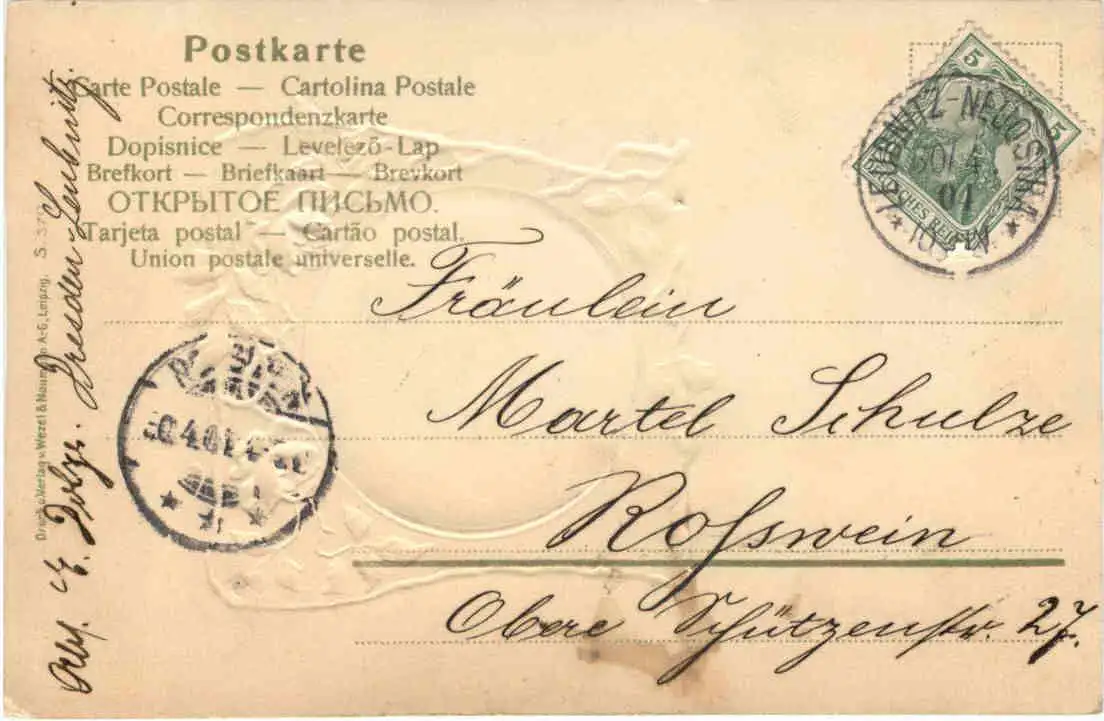 Postkarte
Carte Postale — Cartolina Postale
Correspondenzkarte
Dopisnice — Levelezö-Lap
Brefkort — Briefkaart — Brevkort
ОТКРЫТОЕ ПИСЬМО.
Tarjeta postal — Cartão postal.
Union postale universelle.
5 5
LEUBNITZ-NEUOSTRA
30/4
01
Fräulein
Martel Schulze
Roßwein
Obere Schützenstr. 27.
Abs. E. Dresden Leubnitz.
Druck u. Verlag v. Wezel & Naumann A-G, Leipzig. S.